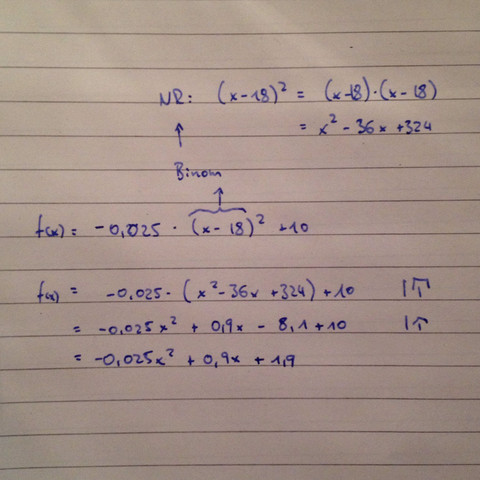 NR: (x-18)² = (x-18)·(x-18)
= x² - 36x + 324
Binom
f(x) = -0,025 · (x - 18)² + 10
f(x) = -0,025 · (x² - 36x + 324) + 10 | T
= -0,025x² + 0,9x - 8,1 + 10 | T
= -0,025x² + 0,9x + 1,9